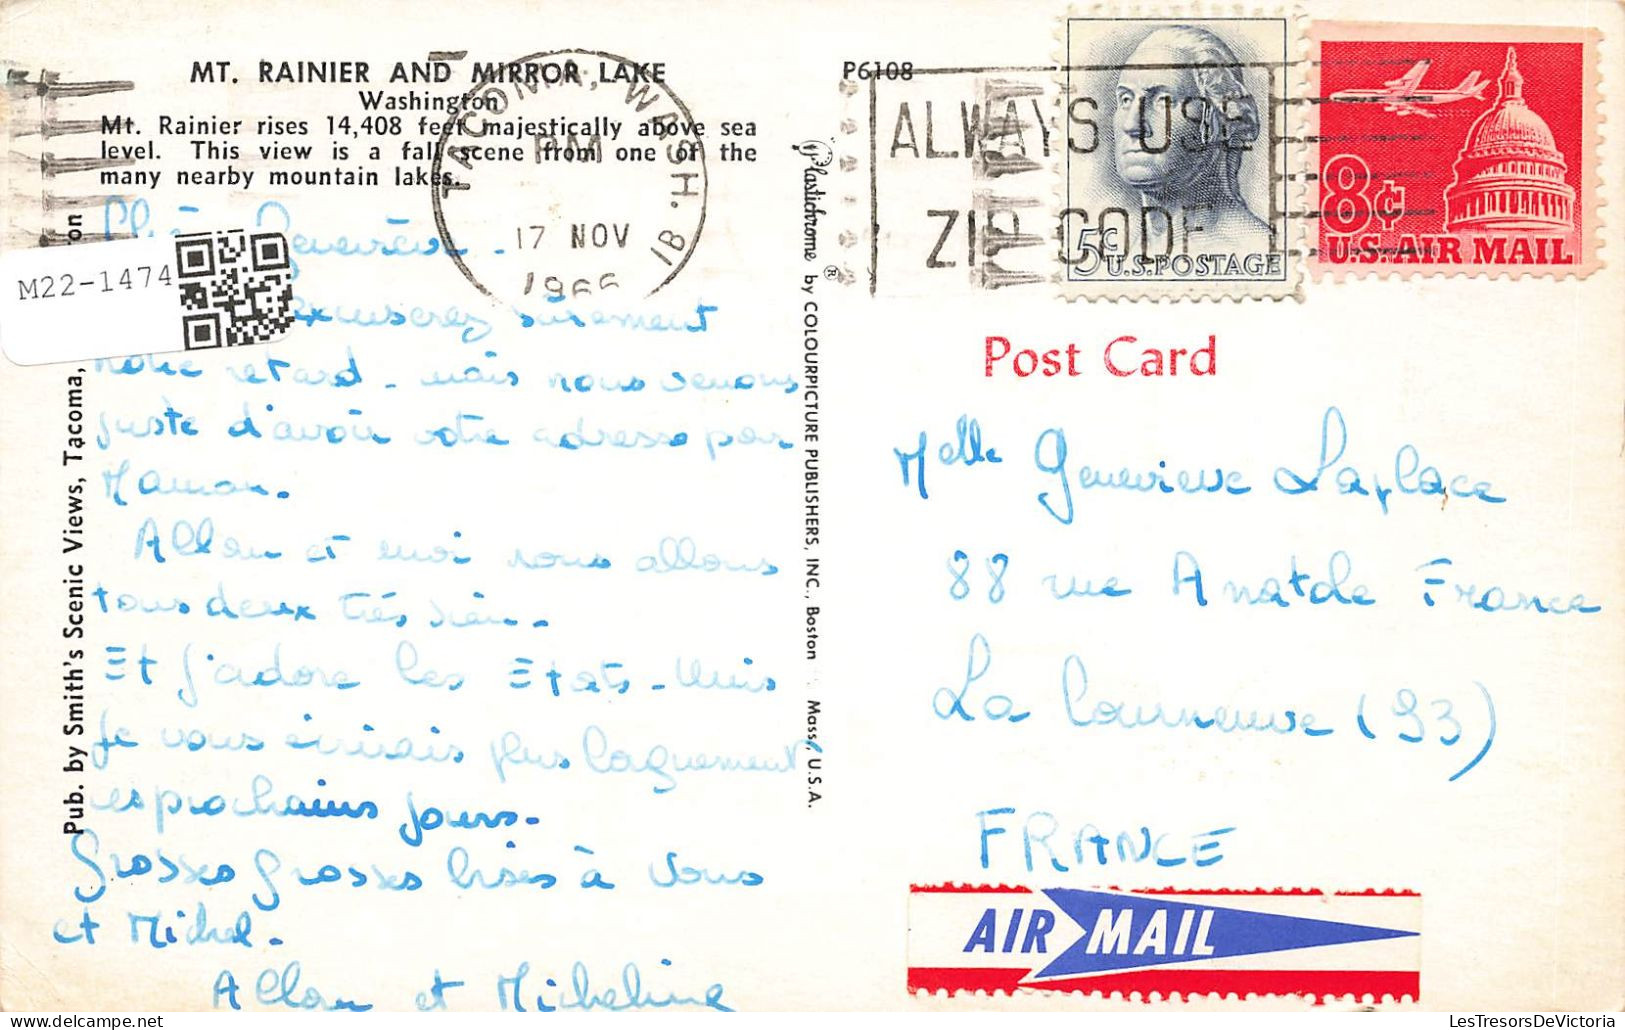 MT. RAINIER AND MIRROR LAKE
Washington
Mt. Rainier rises 14,408 feet majestically above sea
level. This view is a fall scene from one of the
many nearby mountain lakes.
M22-1474
Chère Geneviève -
excuserez sûrement
notre retard - mais nous venons
juste d'avoir votre adresse par
Maman.
Allan et moi nous allons
tous deux très bien -
Et j'adore les Etats-Unis
Je vous écrirais plus longuement
les prochains jours -
Grosses grosses bises à vous
et Michel -
Allan et Micheline
Pub. by Smith's Scenic Views, Tacoma,
Plastichrome ® by COLOURPICTURE PUBLISHERS, INC., Boston Mass., U.S.A.
TACOMA, WASH. 1B
PM
17 NOV
1966
P6108
ALWAYS USE
ZIP CODE
5c
U.S. POSTAGE
8¢
U.S. AIR MAIL
Post Card
Melle Genevieve Laplace
88 rue Anatole France
La Courneuve (93)
FRANCE
AIR MAIL
LesTresorsDeVictoria